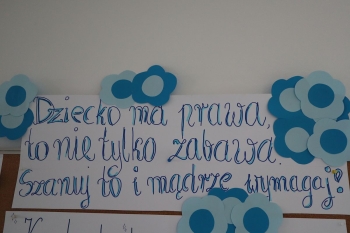 Dziecko ma prawa,
to nie tylko zabawa.
Szanuj to i mądrze wymagaj!